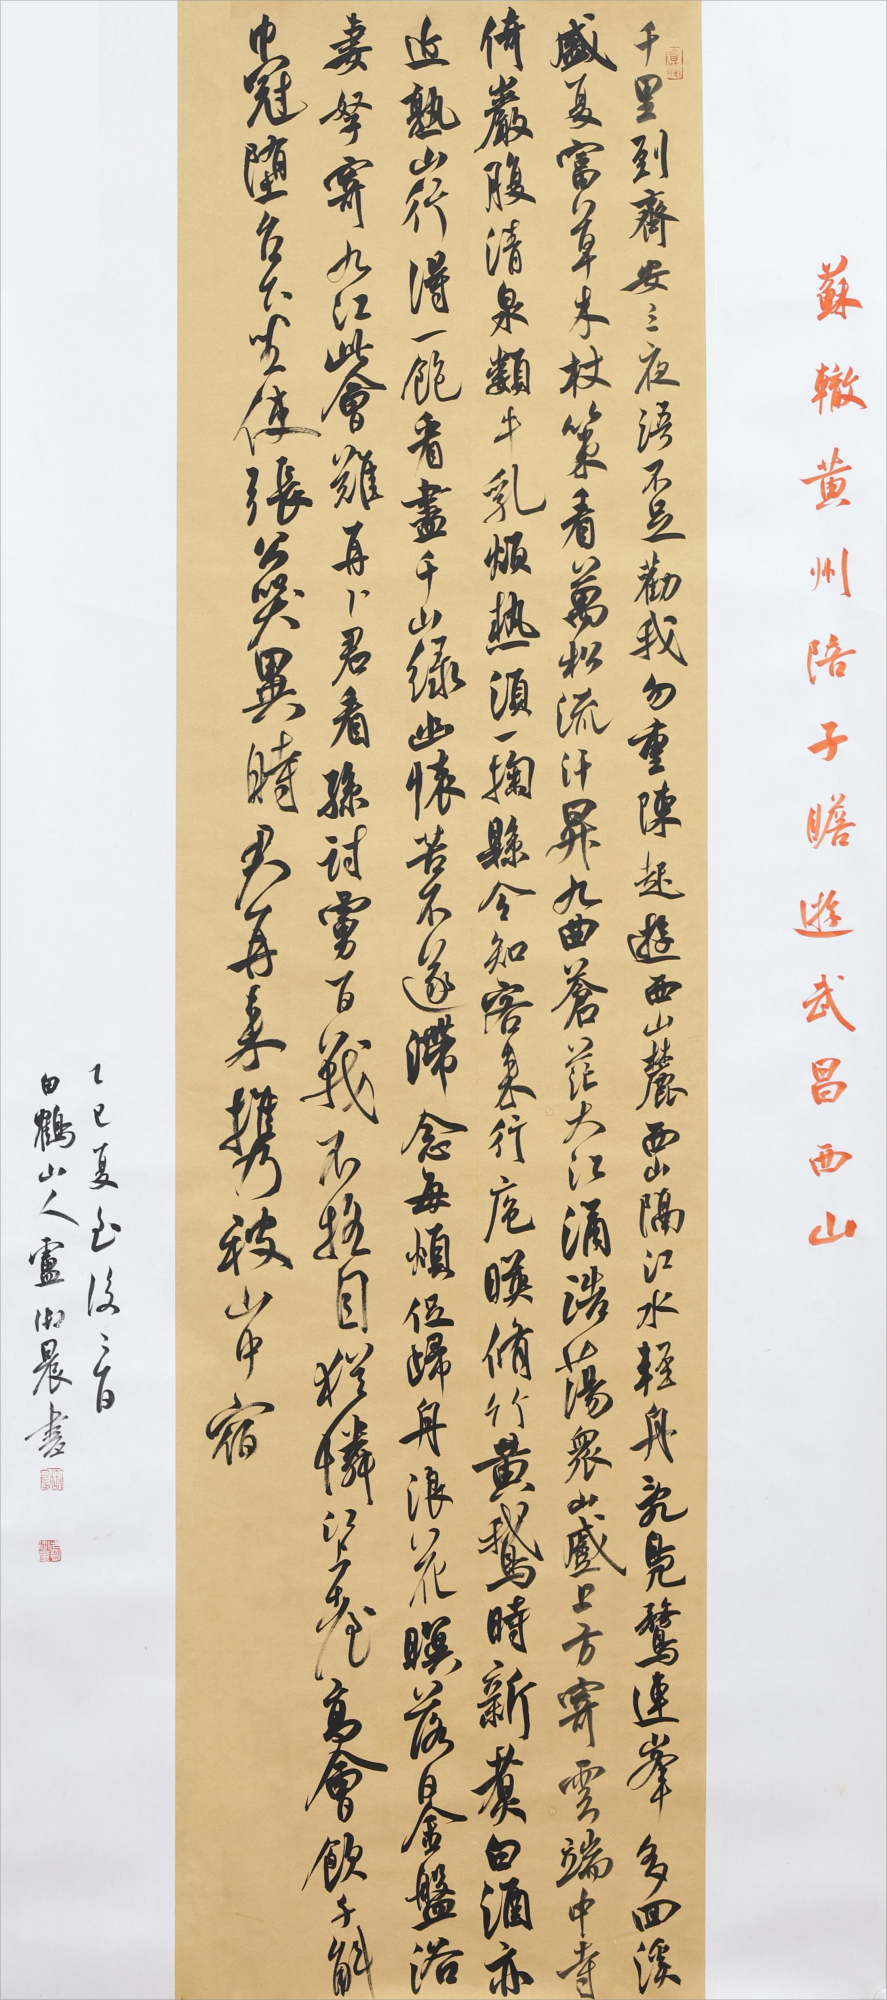 蘇轍黃州陪子瞻遊武昌西山
千里到齊安三夜語不足勸我勿重陳起遊西山麓西山隔江水輕舟亂鳧鶩連峯多回溪
盛夏富草木杖策看萬松流汗昇九曲蒼茫大江涌浩蕩衆山蹙上方寄雲端中寺
倚巖腹清泉類牛乳煩熱須一掬縣令知客來行庖映脩竹黃鵝時新煑白酒亦
近熟山行得一飽看盡千山綠幽懷苦不遂滯念每煩促歸舟浪花暝落日金盤浴
妻孥寄九江此會難再卜君看孫討虜百戰不搖目猶憐江上臺高會飲千斛
巾冠墮台下坐使張公哭異時君再來携被山中宿
乙巳夏至後三日
白鶴山人盧淑晨書